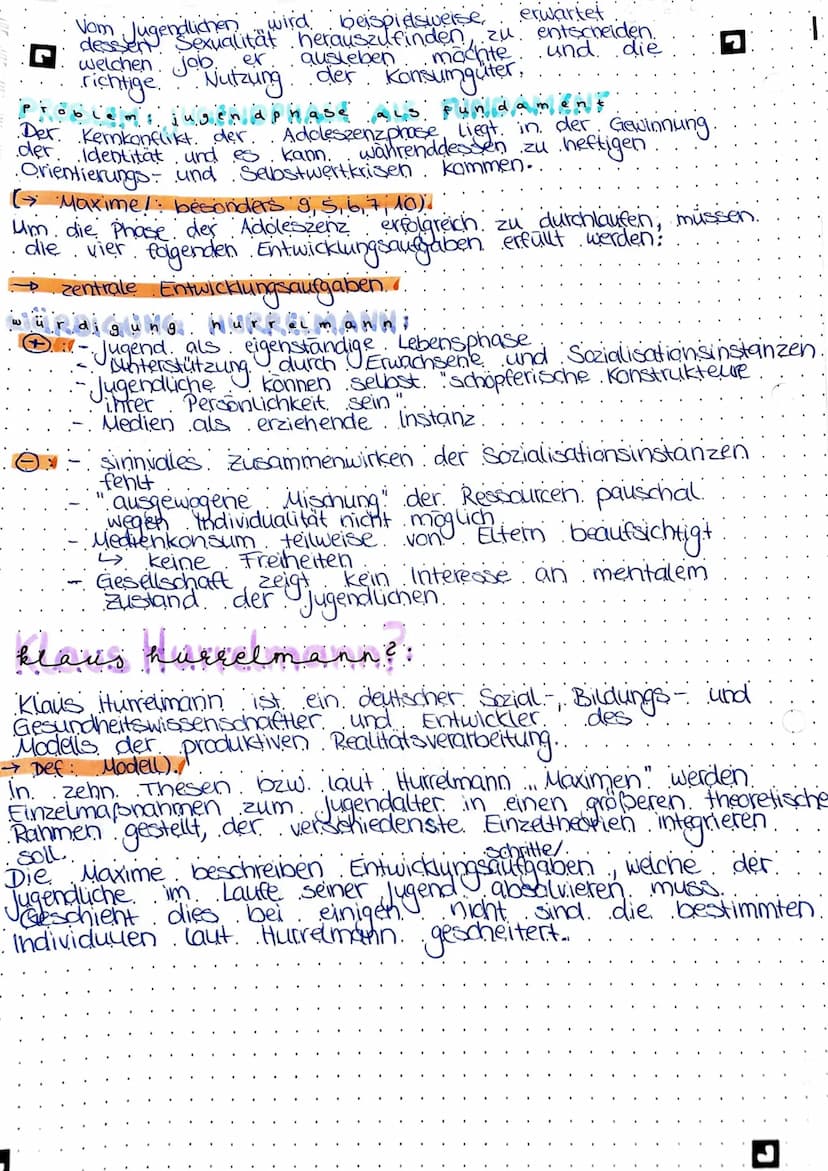 Vom Jugendlichen wird beispielsweise erwartet
dessen Sexualität herauszufinden, zu entscheiden
welchen Job er ausleben möchte und die
richtige Nutzung der Konsumgüter.
Problem: Jugendphase als Fundament
Der Kernkonflikt der Adoleszenzphase liegt in der Gewinnung
der Identität und es kann währenddessen zu heftigen
Orientierungs- und Selbstwertkrisen kommen.
(→ Maxime/: besonders 9, 5, 6, 7, 10).
Um die Phase der Adoleszenz erfolgreich zu durchlaufen, müssen
die vier folgenden Entwicklungsaufgaben erfüllt werden:
→ zentrale Entwicklungsaufgaben
Würdigung Hurrelmann:
(+): - Jugend als eigenständige Lebensphase
- Unterstützung durch Erwachsene und Sozialisationsinstanzen
- Jugendliche können selbst "schöpferische Konstrukteure
ihrer Persönlichkeit sein"
- Medien als erziehende Instanz
(-): - sinnvolles Zusammenwirken der Sozialisationsinstanzen
fehlt
- "ausgewogene Mischung" der Ressourcen pauschal
wegen Individualität nicht möglich
- Medienkonsum teilweise von Eltern beaufsichtigt
↳ keine Freiheiten
- Gesellschaft zeigt kein Interesse an mentalem
Zustand der Jugendlichen
Klaus Hurrelmann?:
Klaus Hurrelmann ist ein deutscher Sozial-, Bildungs- und
Gesundheitswissenschaftler und Entwickler des
Modells der produktiven Realitätsverarbeitung.
→ Def: Modell)
In zehn Thesen bzw. laut Hurrelmann „Maximen" werden
Einzelmaßnahmen zum Jugendalter in einen größeren theoretische
Rahmen gestellt, der verschiedenste Einzeltheorien integrieren
soll.
schritte/
Die Maxime beschreiben Entwicklungsaufgaben, welche der
Jugendliche im Laufe seiner Jugend absolvieren muss.
Geschieht dies bei einigen nicht sind die bestimmten
Individuuen laut Hurrelmann gescheitert.